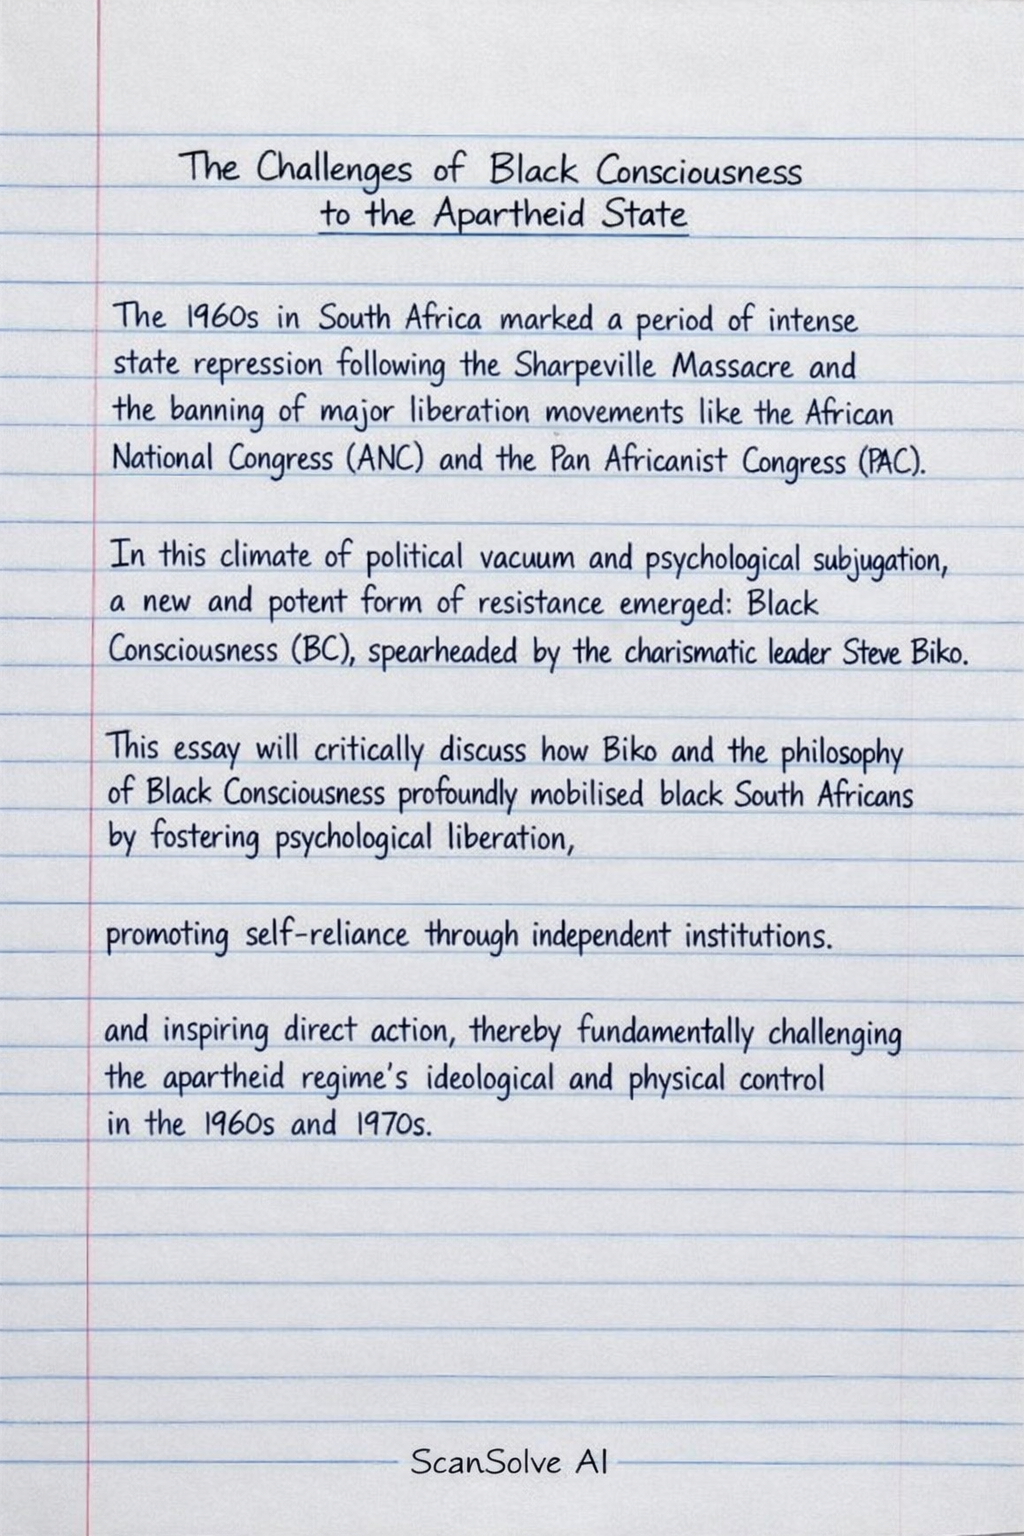 The Challenges of Black Consciousness
to the Apartheid State
The 1960s in South Africa marked a period of intense
state repression following the Sharpeville Massacre and
the banning of major liberation movements like the African
National Congress (ANC) and the Pan Africanist Congress (PAC).
In this climate of political vacuum and psychological subjugation,
a new and potent form of resistance emerged: Black
Consciousness (BC), spearheaded by the charismatic leader Steve Biko.
This essay will critically discuss how Biko and the philosophy
of Black Consciousness profoundly mobilised black South Africans
by fostering psychological liberation,
promoting self-reliance through independent institutions.
and inspiring direct action, thereby fundamentally challenging
the apartheid regime's ideological and physical control
in the 1960s and 1970s.
ScanSolve AI